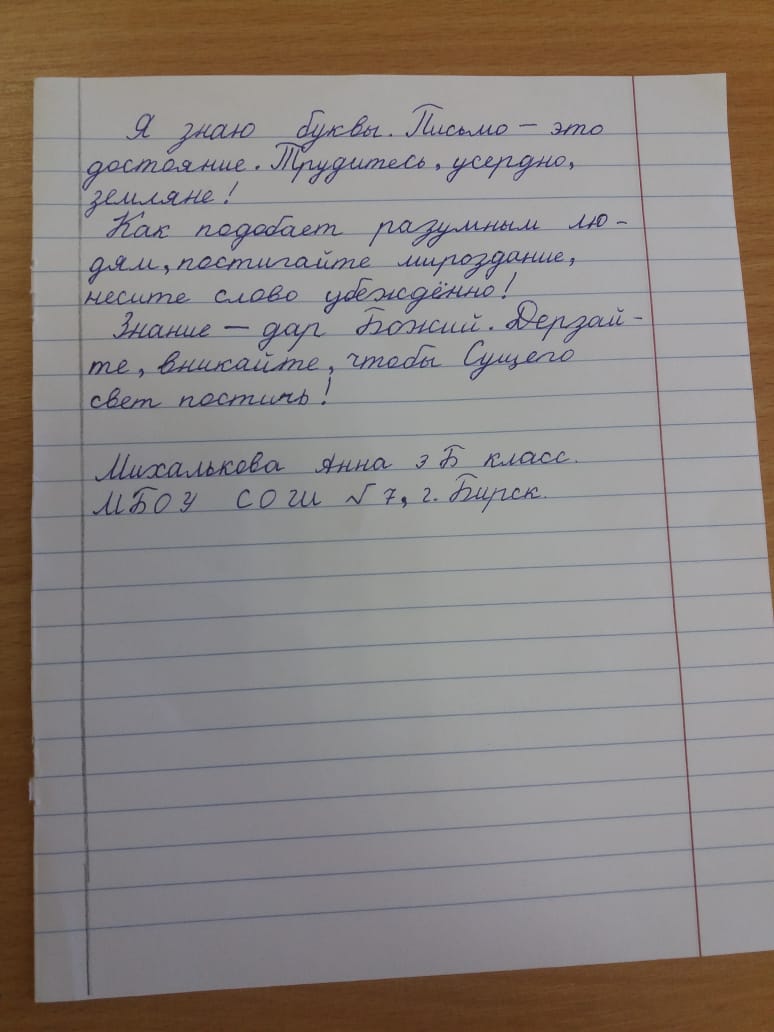 Я знаю буквы. Письмо – это
достояние. Трудитесь, усердно,
земляне!
Как подобает разумным лю-
дям, постигайте мироздание,
несите слово убеждённо!
Знание – дар Божий. Дерзай-
те, вникайте, чтобы Сущего
свет постичь!
Михалькова Анна 3 Б класс.
МБОУ СОШ № 7, г. Бирск.